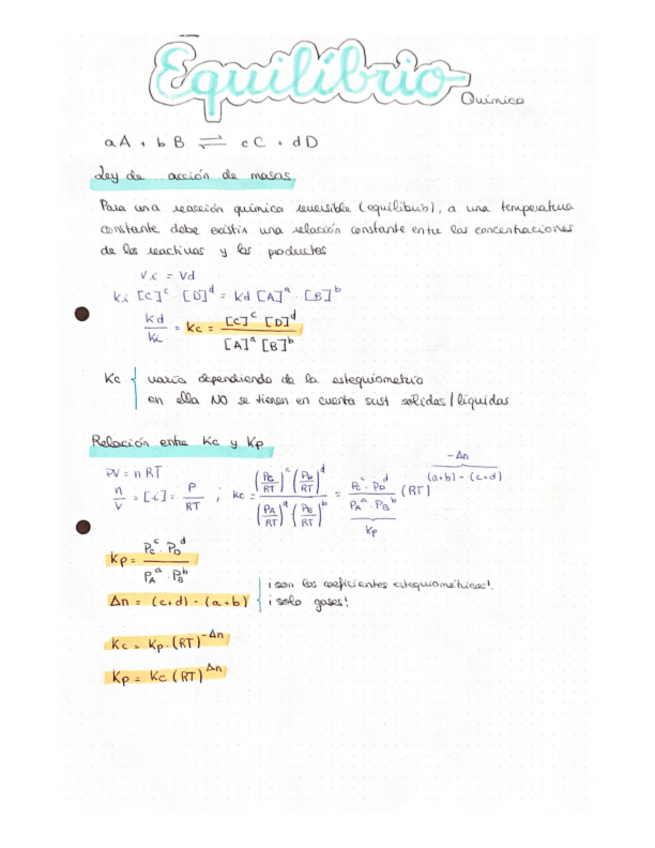 Equilibrio
Químico
aA + bB ⇌ cC + dD
Ley de acción de masas
Para una reacción química reversible (equilibrio), a una temperatura
constante debe existir una relación constante entre las concentraciones
de los reactivos y los productos
Vi = Vd
Ki [C]^c · [D]^d = Kd [A]^a · [B]^b
Kd/Ki = Kc = [C]^c [D]^d / [A]^a [B]^b
Kc { varía dependiendo de la estequiometría
en ella NO se tienen en cuenta sust sólidas/líquidas
Relación entre Kc y Kp
PV = nRT
n/V = [i] = P/RT ; Kc = (Pc/RT)^c (PD/RT)^d / (PA/RT)^a (PB/RT)^b = Pc^c · PD^d / PA^a · PB^b (RT)^(a+b) - (c+d)
-Δn
Kp
Kp = Pc^c · PD^d / PA^a · PB^b
¡son los coeficientes estequiométricos!
Δn = (c+d) - (a+b)
¡solo gases!
Kc = Kp · (RT)^-Δn
Kp = Kc (RT)^Δn